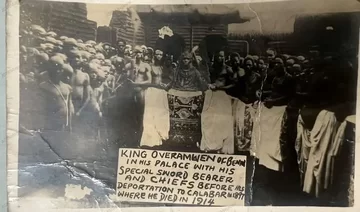 KING OVERAMWEN OF BENIN
IN HIS PALACE WITH HIS
SPECIAL SWORD BEARER
AND CHIEFS BEFORE HIS
DEPORTATION TO CALABAR IN 1897
WHERE HE DIED IN 1914